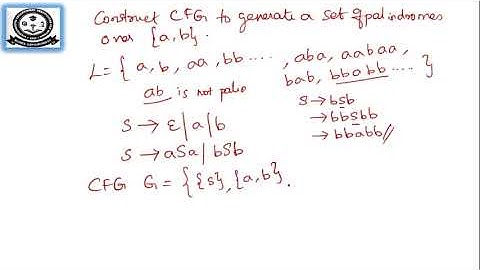 Construct CFG to generate a set of palindromes
over {a,b}.
L = { a, b, aa, bb ...., aba, aabaa,
bab, bbabb .... }
ab is not palio
S → ε | a | b
S → aSa | bSb
S → bSb
→ bbSbb
→ bbabb //
CFG G = { {S}, {a,b}.